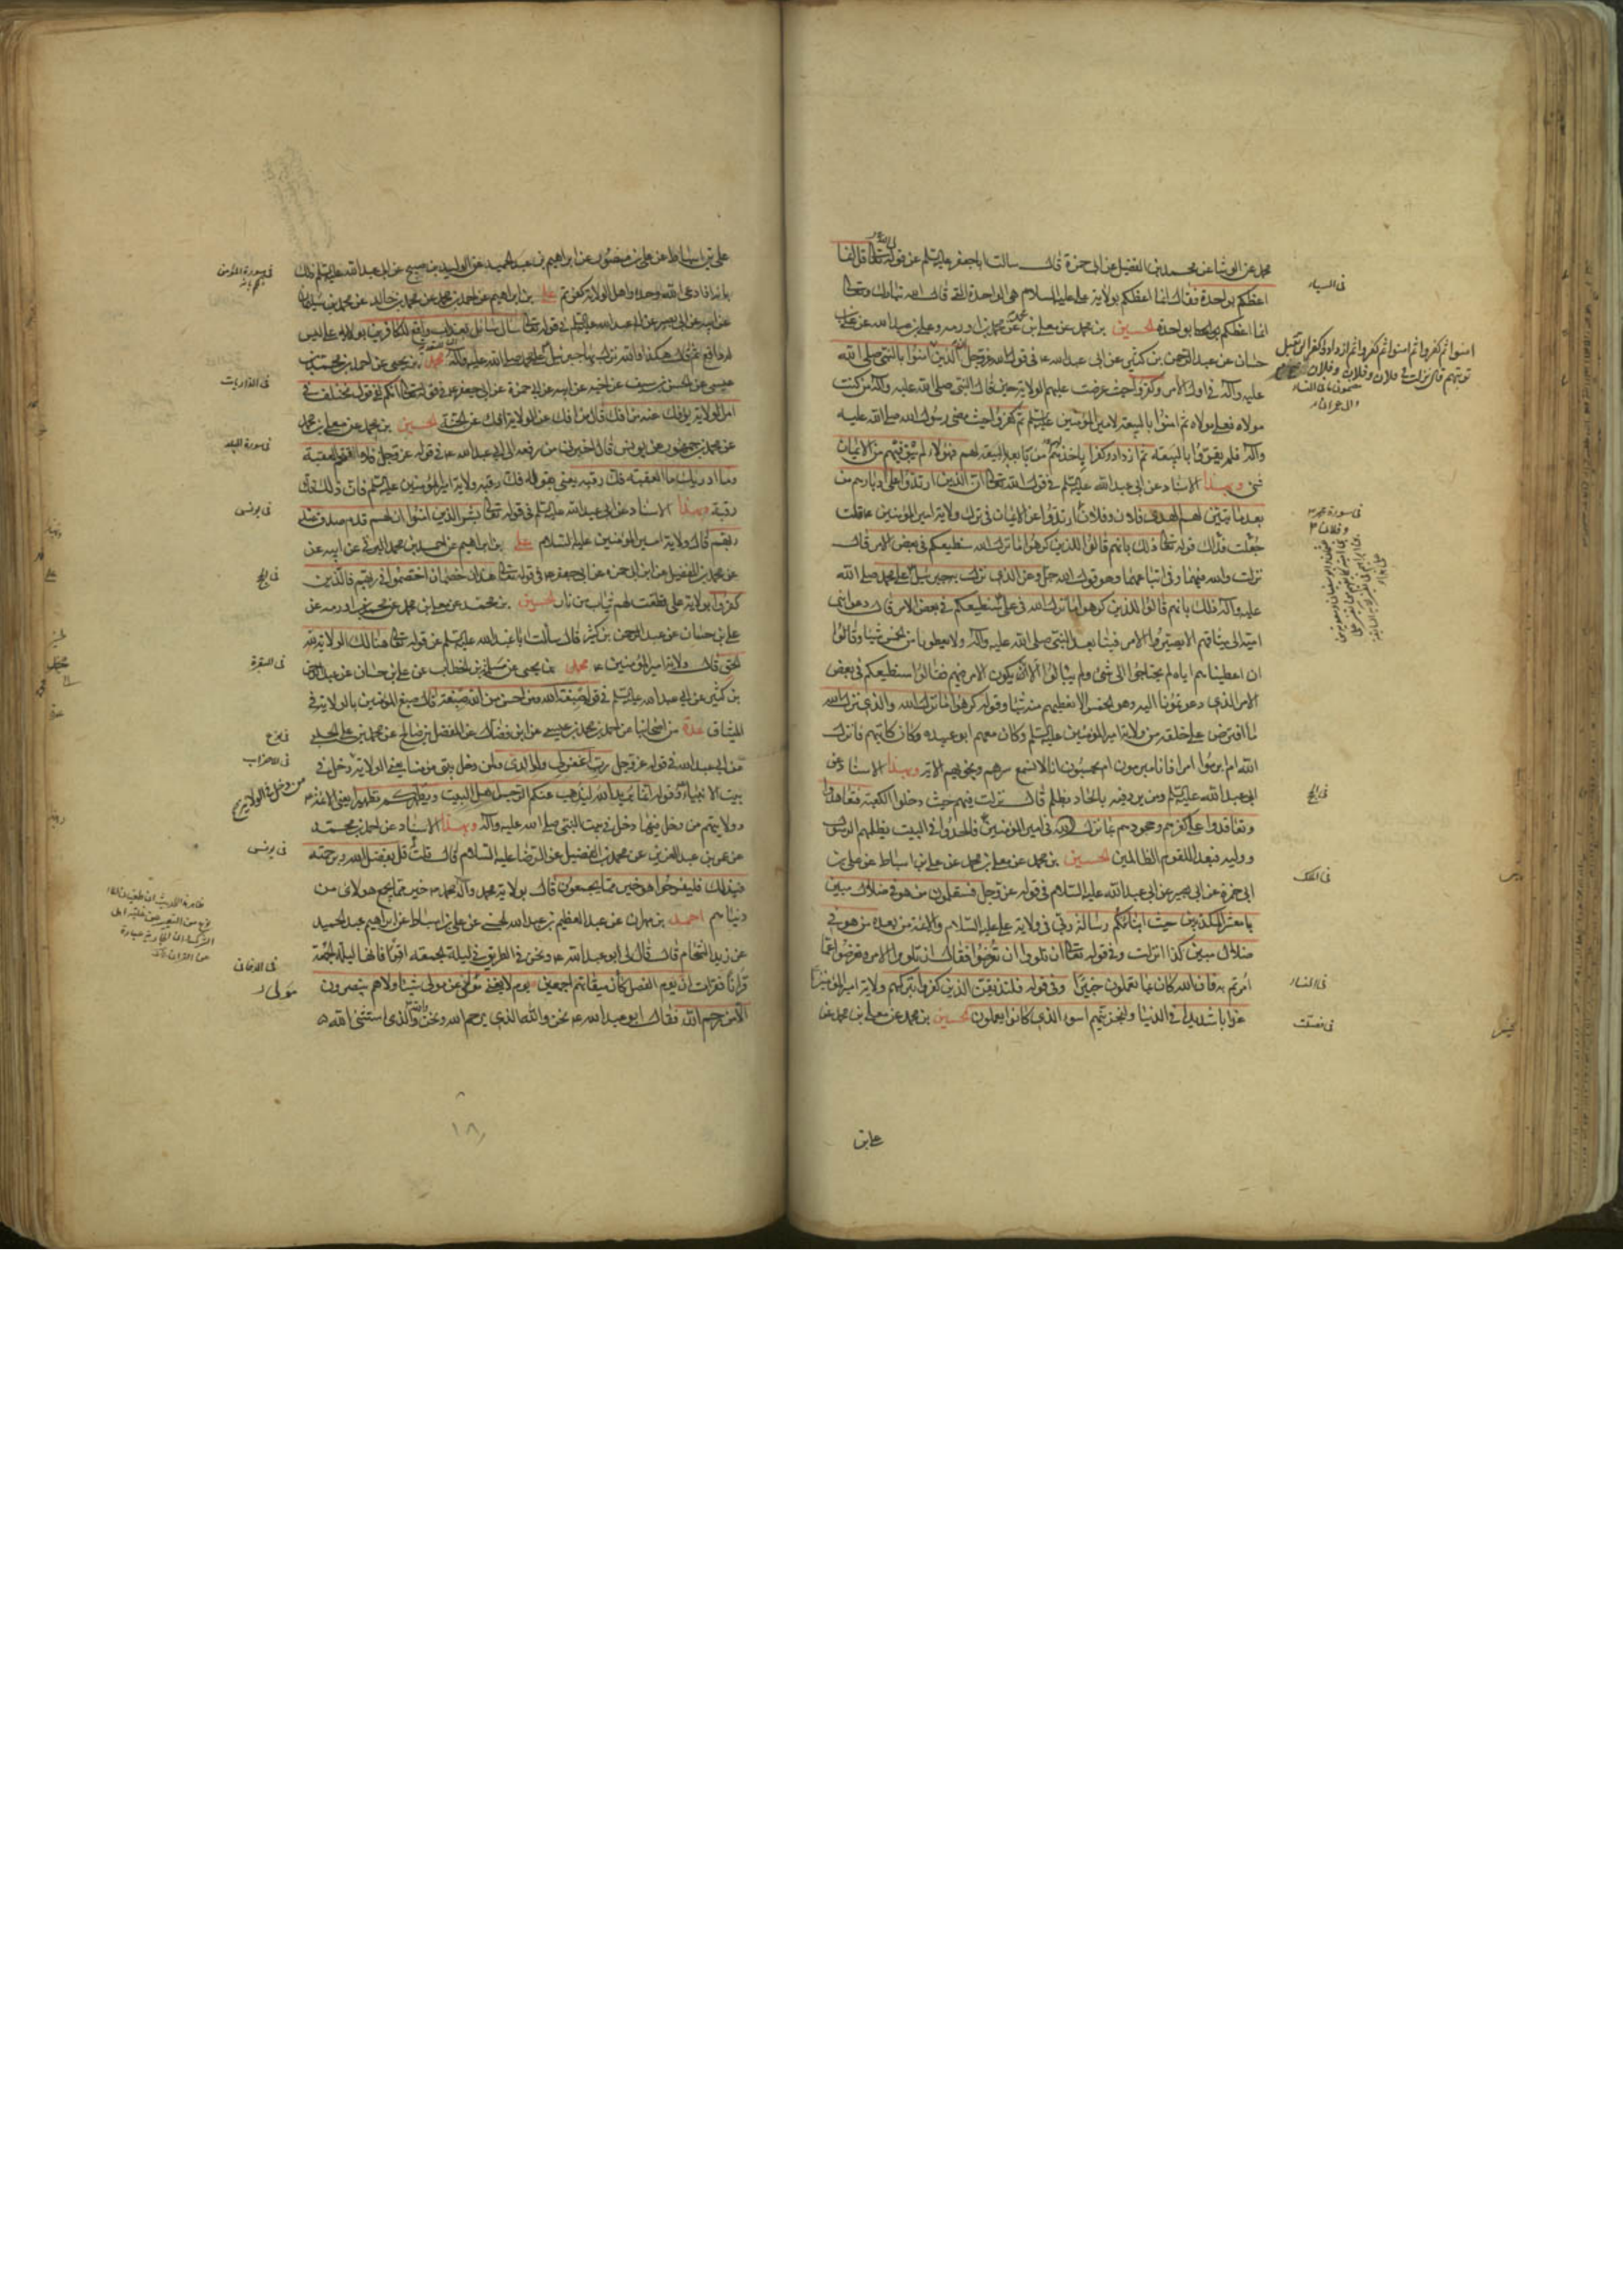 محمد عن الوشا عن محمد بن الفضيل عن ابى حمزة قال سالت ابا جعفر عليه السلم عن قوله تعالى قل انما
اعظكم بواحدة فقال انما اعظكم بولاية على عليه السلام هى الواحدة التى قال الله تبارك وتعالى
انما اعظكم بواحدة الحسين بن محمد عن معلى بن محمد عن محمد بن اورمه وعلى بن عبدالله عن على بن
حسان عن عبد الرحمن بن كثير عن ابى عبد الله ع فى قول الله عز وجل ان الذين امنوا بالنبى صلى الله
عليه وآله فى اول الامر وكفروا حيث عرضت عليهم الولاية حين قال النبى صلى الله عليه وآله من كنت
مولاه فعلى مولاه ثم امنوا بالبيعة لامير المؤمنين عليه السلم ثم كفروا حيث مضى رسول الله صلى الله عليه
وآله فلم يقروا بالبيعة ثم ازدادوا كفرا باخذهم من بايعه بالبيعة لهم فهؤلاء لم يبق فيهم من الايمان
شى وبهذا الاسناد عن ابى عبد الله عليه السلم فى قول الله تعالى ان الذين ارتدوا على ادبارهم من
بعد ما تبين لهم الهدى فلان وفلان وفلان ارتدوا عن الايمان فى ترك ولاية امير المؤمنين ع قلت
قلت قوله تعالى ذلك بانهم قالوا للذين كرهوا ما نزل الله سنطيعكم فى بعض الامر قال
نزلت والله فيهما وفى اتباعهما وهو قول الله عز وجل الذى نزل به جبرئيل على محمد صلى الله
عليه وآله ذلك بانهم قالوا للذين كرهوا ما نزل الله فى على سنطيعكم فى بعض الامر قال دعوا بنى
امية الى ميثاقهم الا يصيروا الامر فينا بعد النبى صلى الله عليه وآله ولا يعطونا من الخمس شيئا وقالوا
ان اعطيناهم اياه لم يحتاجوا الى شى ولم يبالوا الا ان يكون الامر فيهم فقالوا سنطيعكم فى بعض
الامر الذى دعوتمونا اليه وهو الخمس الا نعطيهم منه شيئا وقوله كرهوا ما نزل الله والذى نزل الله
ما افترض على خلقه من ولاية امير المؤمنين عليه السلم وكان معهم ابو عبيده وكان كاتبهم فانزل
الله ام ابرموا امرا فانا مبرمون ام يحسبون انا لا نسمع سرهم ونجويهم الاية وبهذا الاسناد عن
ابى عبد الله عليه السلم ومن يرد فيه بالحاد بظلم قال نزلت فيهم حيث دخلوا الكعبة فتعاهدوا
وتعاقدوا على كفرهم وجحودهم بما نزل الله فى امير المؤمنين فالحدوا فى البيت بظلمهم الرسول
ووليه فبعدا للقوم الظالمين الحسين بن محمد عن معلى بن محمد عن على بن اسباط عن على بن
ابى حمزة عن ابى بصير عن ابى عبد الله عليه السلام فى قوله عز وجل فستعلمون من هو فى ضلال مبين
يا معشر المكذبين حيث انباتكم رسالة ربى فى ولاية على عليه السلام والائمة من بعده من هو فى
ضلال مبين كذا انزلت وفى قوله تعالى ان تلووا او تعرضوا فقال ان تلووا الامر وتعرضوا عما
امرتم به فان الله كان بما تعملون خبيرا وفى قوله فلنذيقن الذين كفروا بتركهم ولاية امير المؤمنين
عذابا شديدا فى الدنيا ولنجزينهم اسوء الذى كانوا يعملون الحسين بن محمد عن معلى بن محمد عن
على بن
فى السباء
امنوا ثم كفروا ثم امنوا ثم كفروا ثم ازدادوا كفرا لن تقبل
توبتهم قال نزلت فى فلان وفلان وفلان
فى سورة محمد ص
فى الحج
فى الملك
فى النساء
فى فصلت
على بن اسباط عن على بن منصور عن ابراهيم بن عبد الحميد عن الوليد بن صبيح عن ابى عبد الله عليه السلم ذلك
بانه اذا دعى الله وحده واهل الولاية كفرتم على بن ابراهيم عن احمد بن محمد عن محمد بن خالد عن محمد بن سليمان
عن ابيه عن ابى بصير عن ابى عبد الله عليه السلم فى قوله تعالى سال سائل بعذاب واقع للكافرين بولاية على ليس
له دافع ثم قال هكذا والله نزل بها جبرئيل على محمد صلى الله عليه وآله محمد بن يحيى عن احمد بن محمد بن
عيسى عن الحسن بن سيف عن اخيه عن ابيه عن ابى حمزة عن ابى جعفر ع فى قوله تعالى انكم لفى قول مختلف فى
امر الولاية يؤفك عنه من افك قال من افك عن الولاية افك عن الجنة الحسين بن محمد عن معلى بن محمد
عن محمد بن جمهور عن يونس قال اخبرنى من رفعه الى ابى عبد الله ع فى قوله عز وجل فلا اقتحم العقبة
وما ادريك ما العقبة فك رقبة يعنى بقوله فك رقبة ولاية امير المؤمنين عليه السلم فان ذلك فك
رقبة وبهذا الاسناد عن ابى عبد الله عليه السلم فى قوله تعالى بشر الذين امنوا ان لهم قدم صدق عند
ربهم قال ولاية امير المؤمنين عليه السلام على بن ابراهيم عن احمد بن محمد البرقى عن ابيه عن
عن محمد بن الفضيل عن ابى حمزه عن ابى جعفر ع فى قوله تعالى هذان خصمان اختصموا فى ربهم فالذين
كفروا بولاية على قطعت لهم ثياب من نار الحسين بن محمد عن معلى بن محمد عن محمد بن اورمه عن
على بن حسان عن عبد الرحمن بن كثير قال سالت ابا عبد الله عليه السلم عن قوله تعالى هنالك الولاية لله
الحق قال ولاية امير المؤمنين ع محمد بن يحيى عن سلمة بن الخطاب عن على بن حسان عن عبد الرحمن
بن كثير عن ابى عبد الله عليه السلم فى قوله صبغة الله ومن احسن من الله صبغة قال صبغ المؤمنين بالولاية فى
الميثاق عدة من اصحابنا عن احمد بن محمد بن عيسى عن ابن فضال عن المفضل بن صالح عن محمد بن على الحلبى
عن ابى عبد الله فى قوله عز وجل رب اغفر لى ولوالدى ولمن دخل بيتى مؤمنا يعنى الولاية دخل فى
بيت الانبياء وقوله انما يريد الله ليذهب عنكم الرجس اهل البيت ويطهركم تطهيرا يعنى الائمة ع
وولايتهم من دخل فيها دخل فى بيت النبى صلى الله عليه وآله وبهذا الاسناد عن احمد بن محمد
عن عمر بن عبد العزيز عن محمد بن الفضيل عن الرضا عليه السلام قال قلت قل بفضل الله وبرحمته
فبذلك فليفرحوا هو خير مما يجمعون قال بولاية محمد وآل محمد ع خير مما يجمع هؤلاى من
دنياهم احمد بن مهران عن عبد العظيم بن عبد الله الحسنى عن على بن اسباط عن ابراهيم بن عبد الحميد
عن زيد الشحام قال قال لى ابو عبد الله ع ونحن فى الطريق فى ليلة الجمعة اقرا فانها ليلة الجمعة
قرانا فقرات ان يوم الفصل كان ميقاتهم اجمعين يوم لا يغنى مولى عن مولى شيئا ولاهم ينصرون
الا من رحم الله فقال ابو عبد الله ع نحن والله الذى يرحم الله ونحن والله الذى استثنى الله
فى سورة المؤمن
فى الذاريات
فى سورة البلد
فى يونس
فى الحج
فى البقرة
فى نوح
فى الاحزاب
من دخل فى الولاية
فى يونس
فى الدخان
مولى
١٨